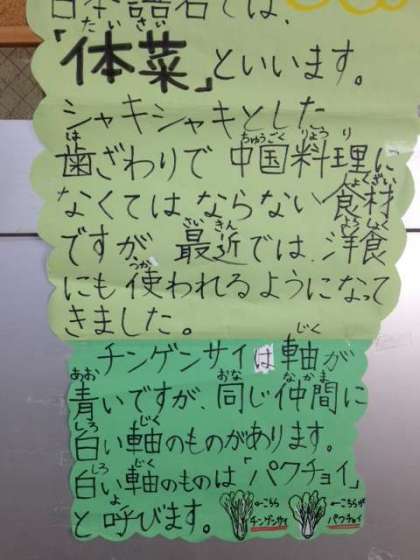 日本語名では、
「体菜」といいます。
シャキシャキとした
歯ざわりで 中国料理に
なくてはならない 食材
ですが 最近では、洋食
にも使われるようになって
きました。
チンゲンサイは軸が
青いですが、同じ仲間に
白い軸のものがあります。
白い軸のものは「パクチョイ」
と呼びます。
←こちら
チンゲンサイ
←こちらが
パクチョイ